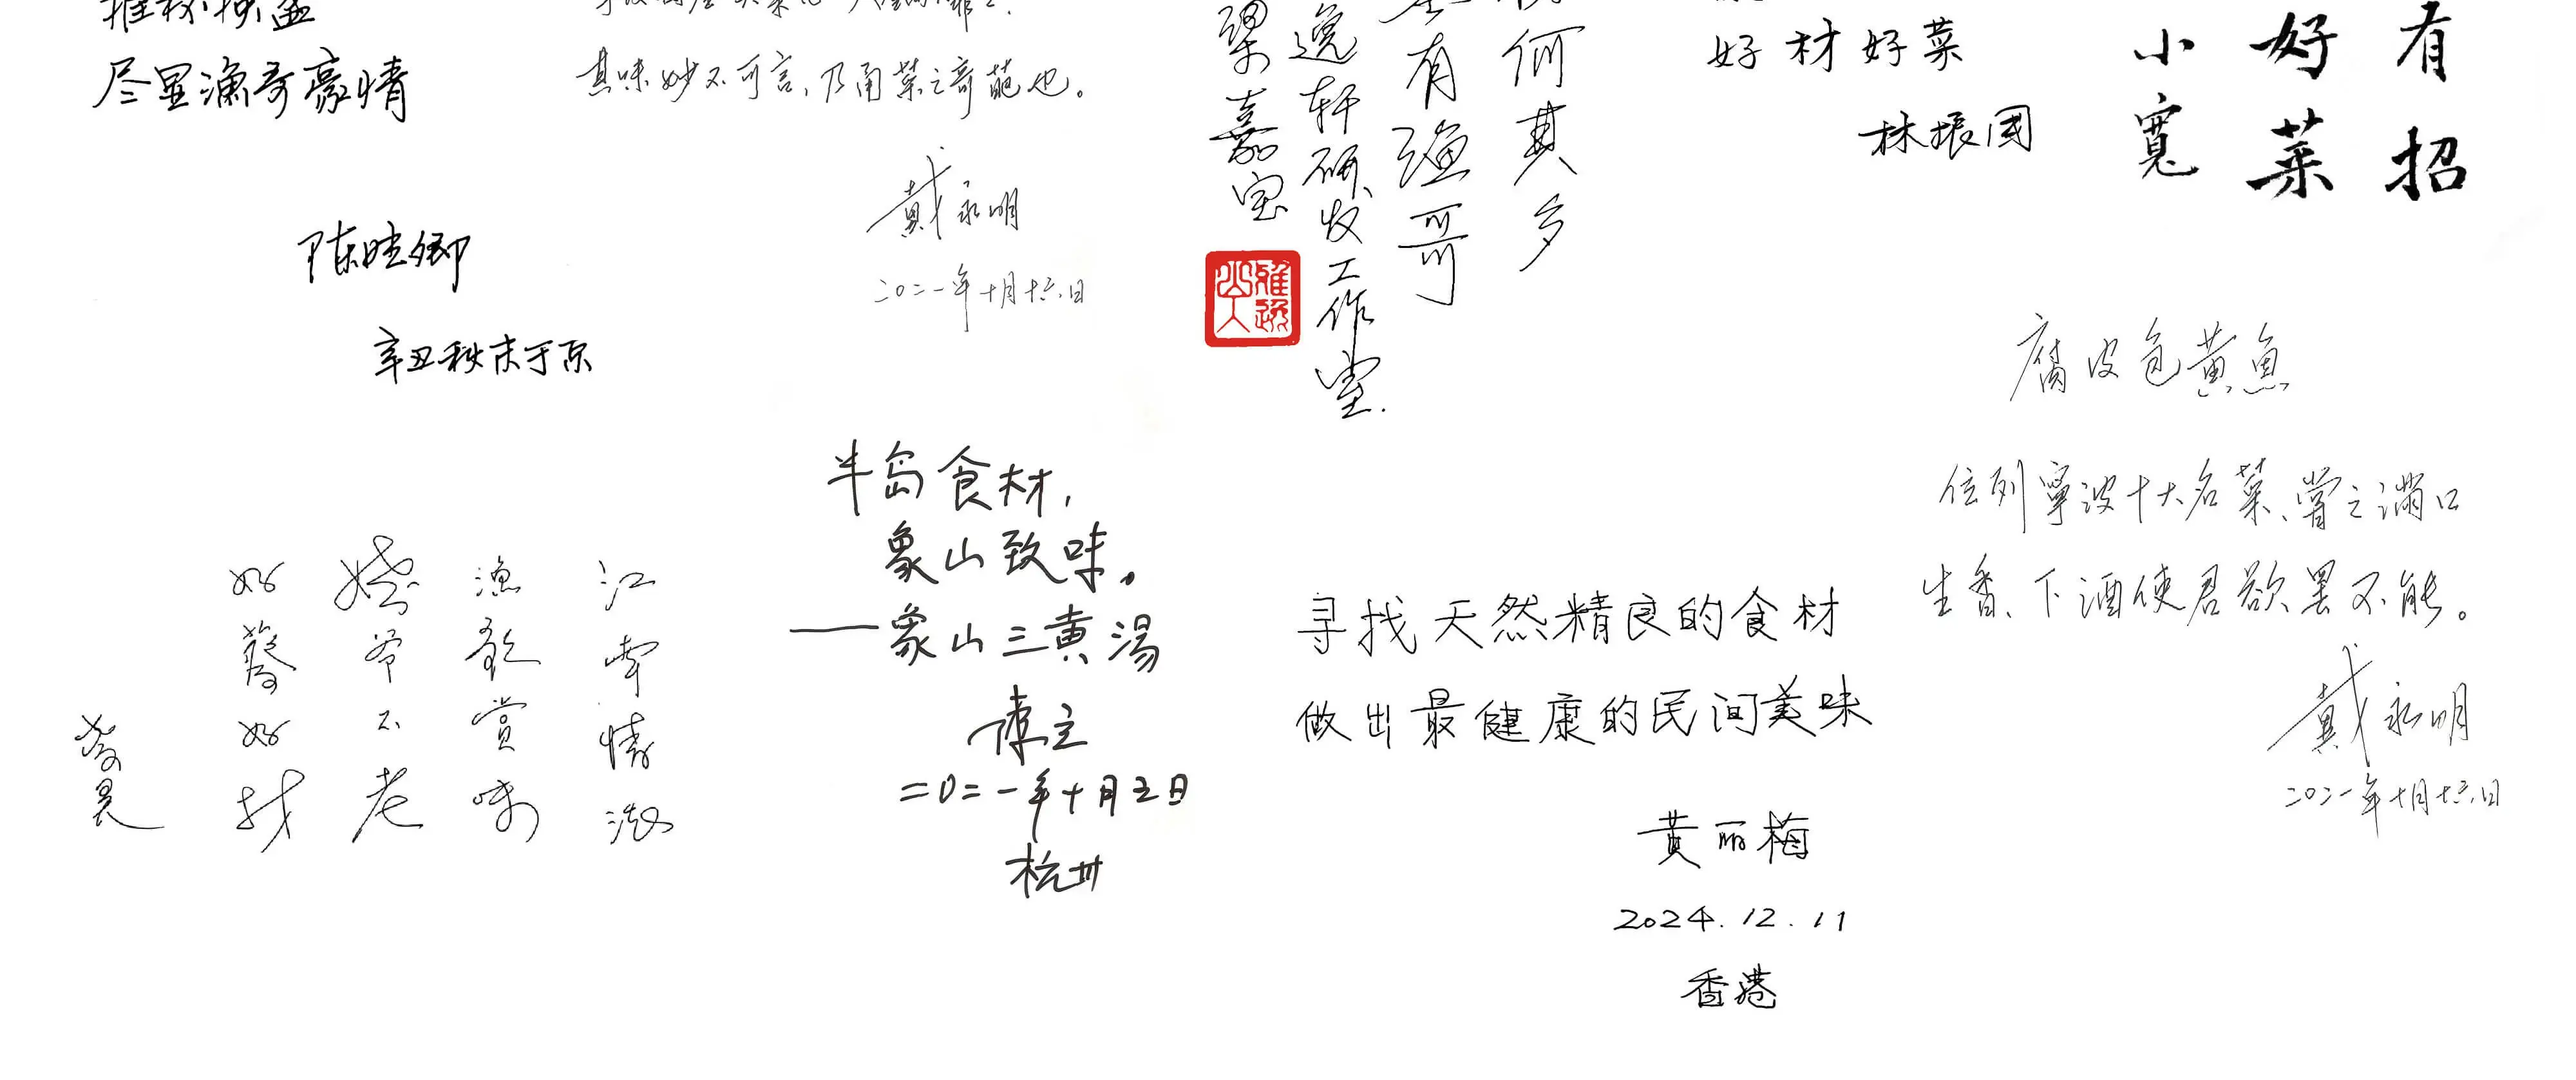 推杯换盏
尽显渔哥豪情
陈晓卿
辛丑秋末于京
其味妙不可言,乃甬菜之奇葩也。
戴永明
二〇二一年十月十六日
何其多
有渔哥
逸轩研发工作室.
梁嘉宝
雅逸
好材好菜
林振国
有招
好菜
小宽
腐皮包黄鱼
位列寧波十大名菜、嘗之满口
生香、下酒使君欲罢不能。
戴永明
二〇二一年十月十六日
江
渔 賞味
爷不老
好 好找
蔡昊
半岛食材,
象山致味。
——象山三黄湯
陳立
二0二一年十月五日
杭州
寻找天然精良的食材
做出最健康的民间美味
黄丽梅
2024.12.11
香港